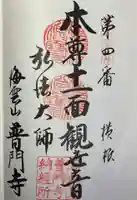 第四番
横根
本尊十一面観世音
弘法大師
海雲山普門寺
納経所